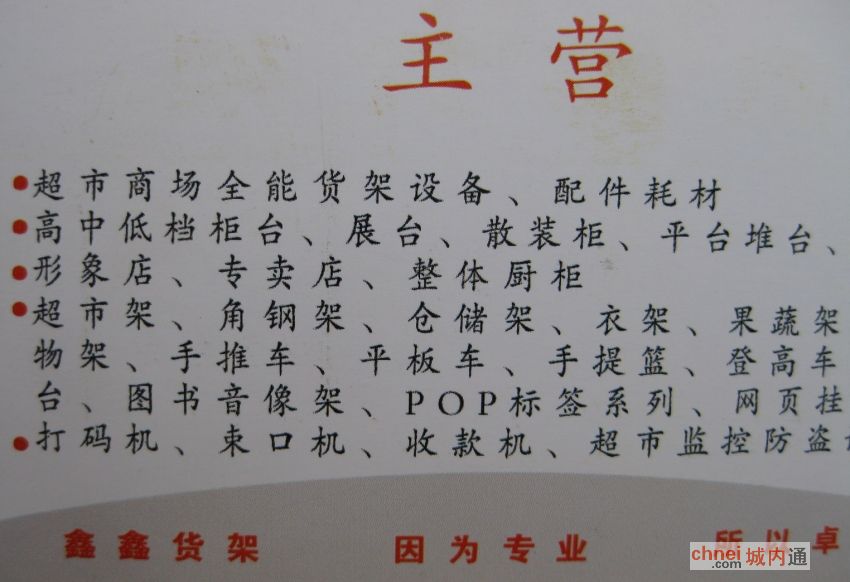 主营
超市商场全能货架设备、配件耗材
高中低档柜台、展台、散装柜、平台堆台、
形象店、专卖店、整体厨柜
超市架、角钢架、仓储架、衣架、果蔬架
物架、手推车、平板车、手提篮、登高车
台、图书音像架、POP标签系列、网页挂
打码机、束口机、收款机、超市监控防盗
鑫鑫货架 因为专业 所以卓
chnei.com 城内通